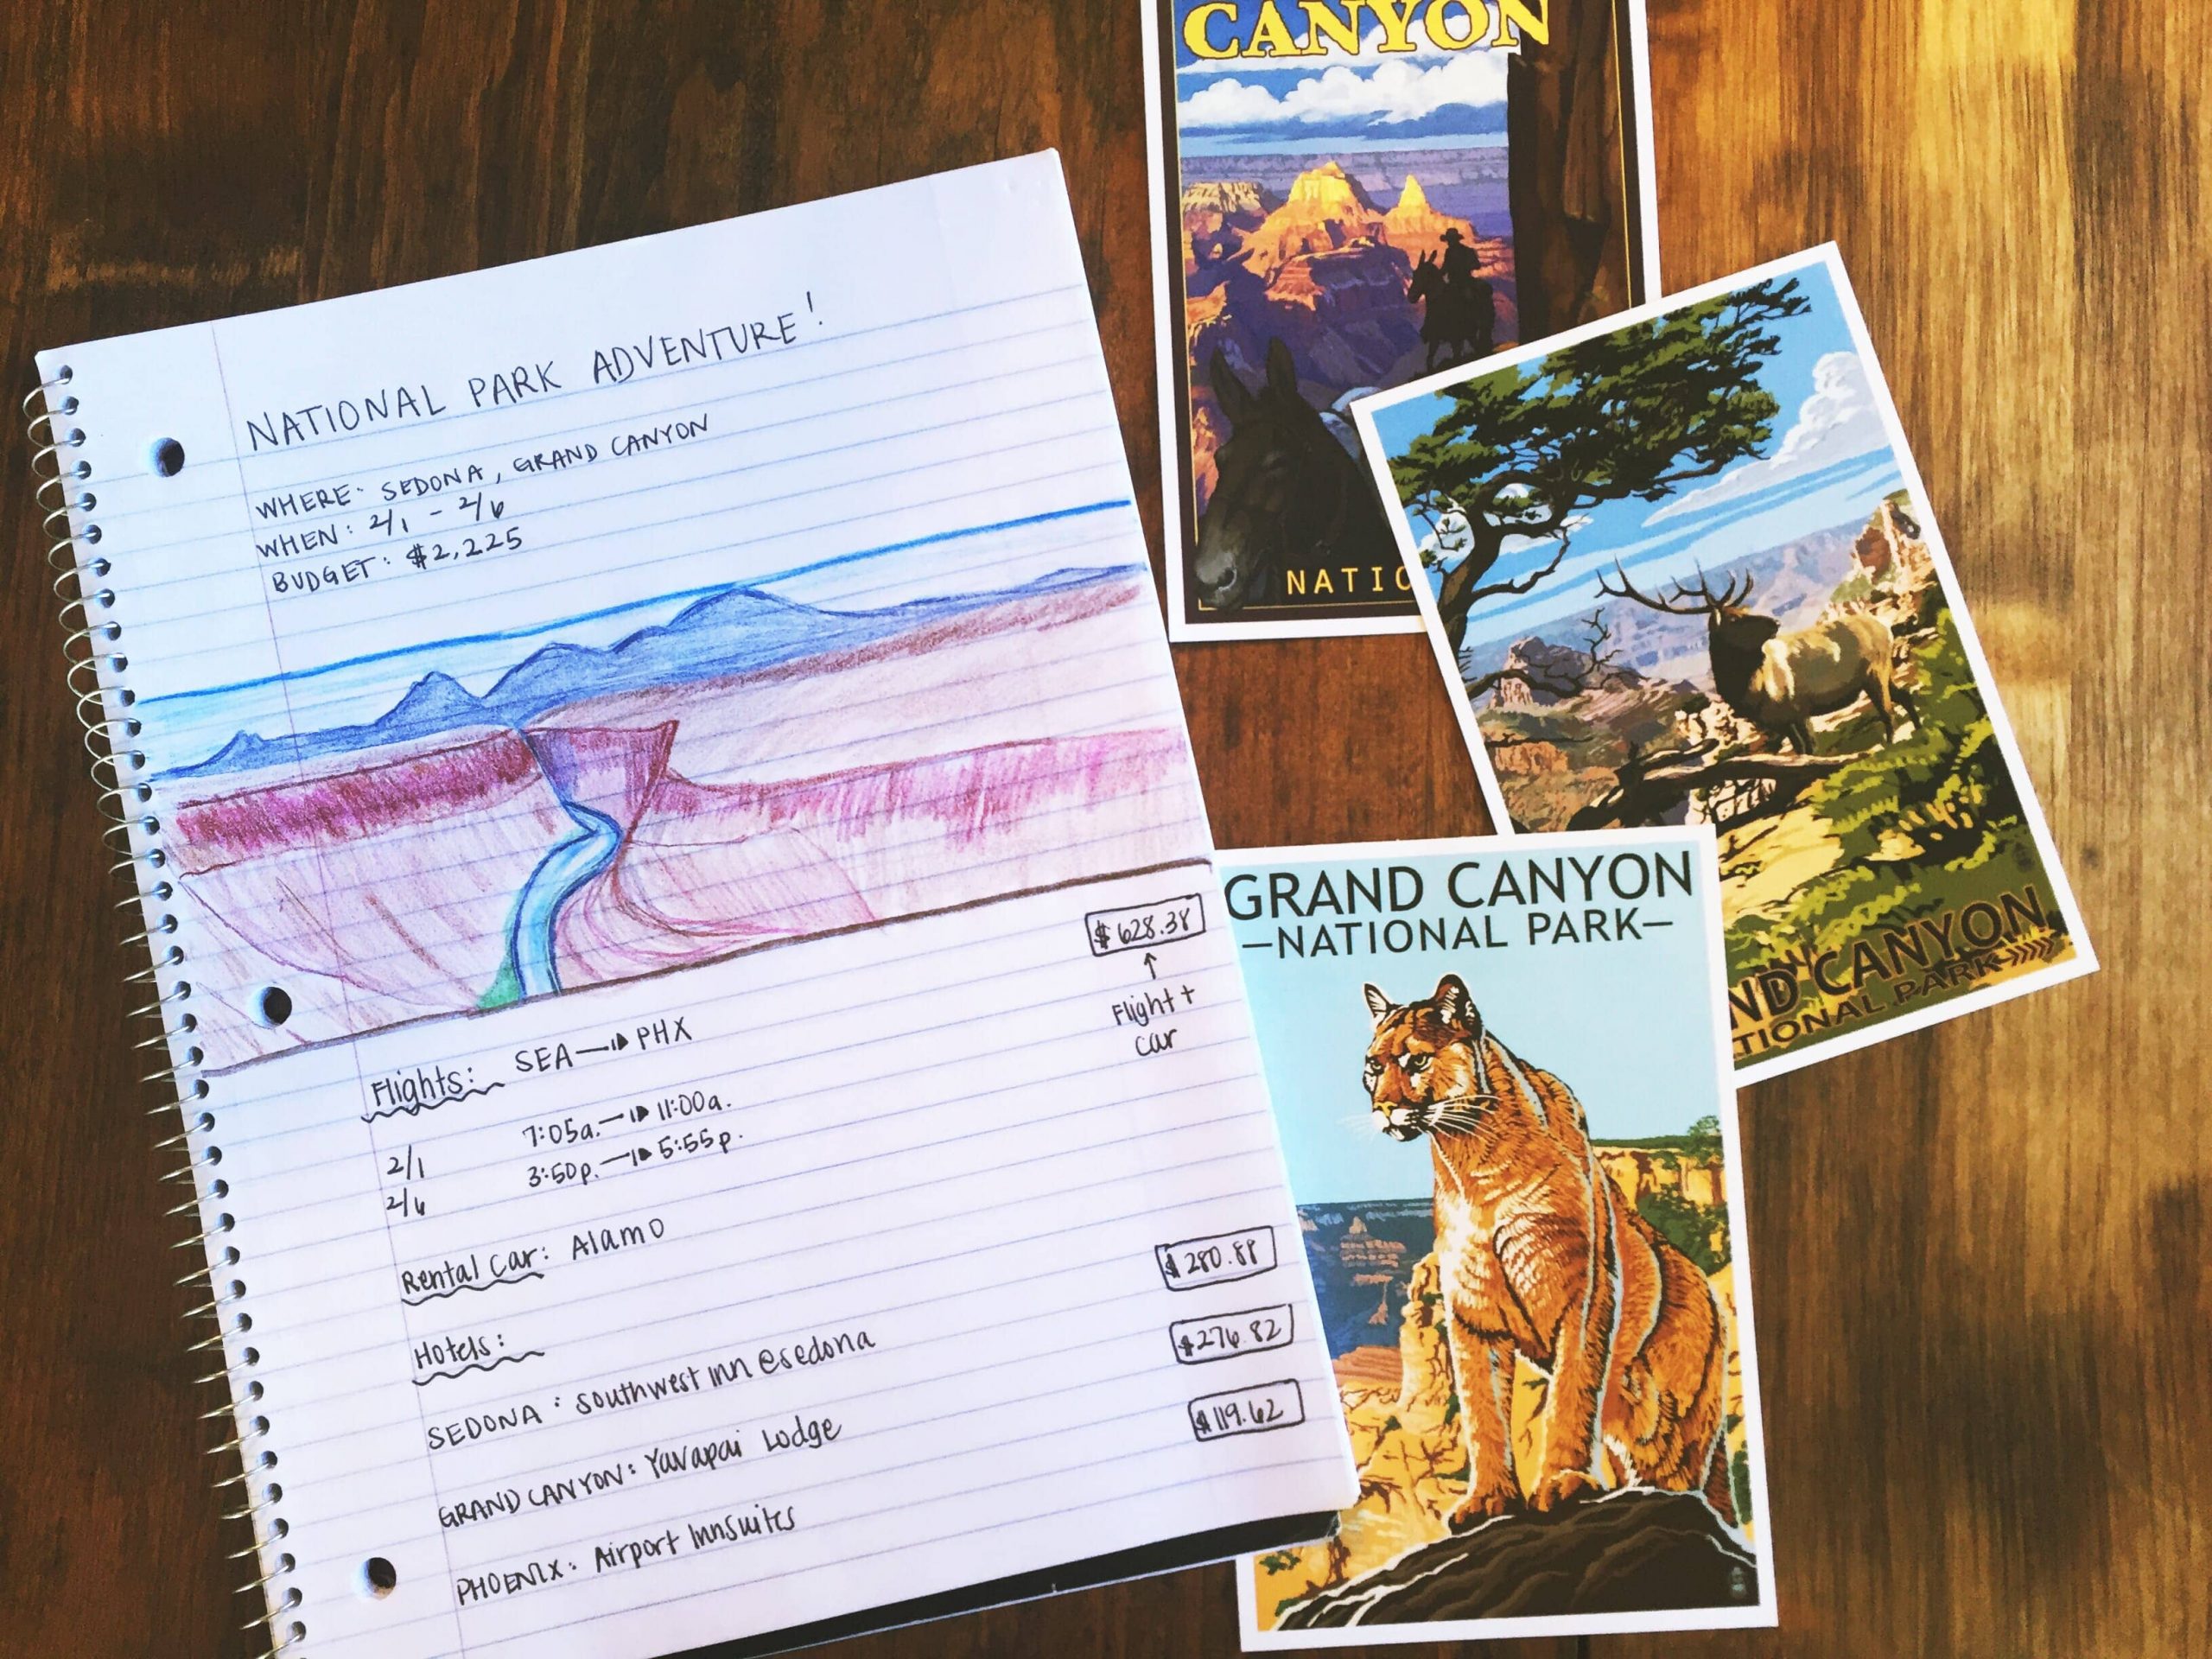 NATIONAL PARK ADVENTURE!
WHERE: SEDONA, GRAND CANYON
WHEN: 2/1 - 2/6
BUDGET: $2,225
$628.38
↑
Flight +
car
Flights: SEA → PHX
2/1 7:05a. → 11:00a.
2/6 3:50p. → 5:55p.
Rental Car: Alamo
Hotels:
$280.88
SEDONA: Southwest Inn @sedona
$276.82
GRAND CANYON: Yavapai Lodge
$119.62
PHOENIX: Airport InnSuites
CANYON
NATIO
ND CANYON
TIONAL PARK
GRAND CANYON
—NATIONAL PARK—